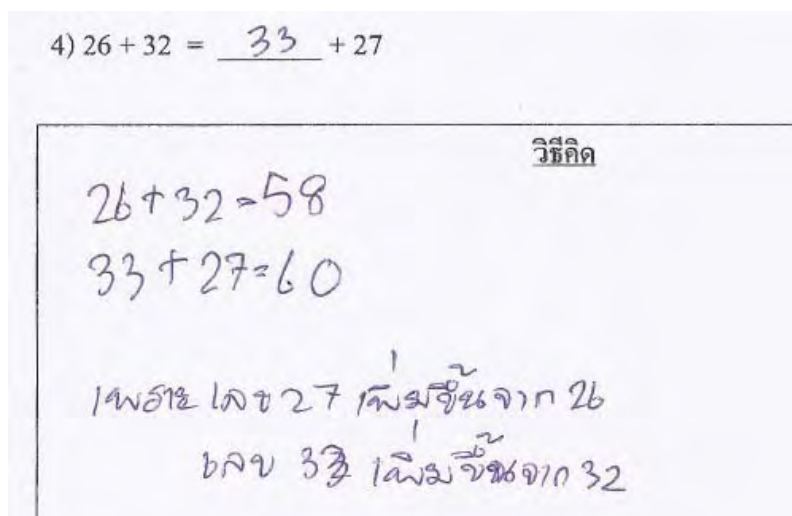 4) 26 + 32 = 33 + 27
วิธีคิด
26+32=58
33+27=60
เพราะ เลข 27 เพิ่มขึ้นจาก 26
เลข 33 เพิ่มขึ้นจาก 32